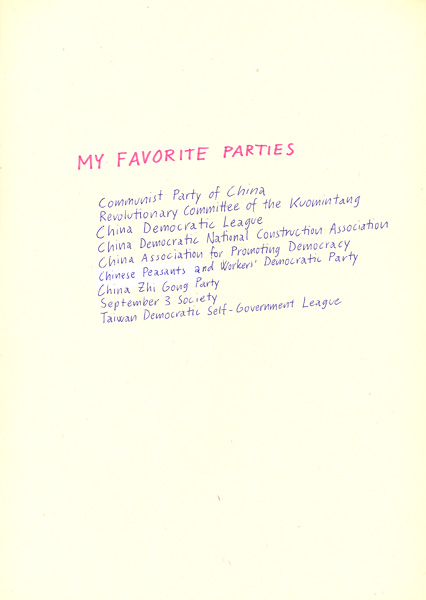 MY FAVORITE PARTIES
Communist Party of China
Revolutionary Committee of the Kuomintang
China Democratic League
China Democratic National Construction Association
China Association for Promoting Democracy
Chinese Peasants and Workers' Democratic Party
China Zhi Gong Party
September 3 Society
Taiwan Democratic Self-Government League